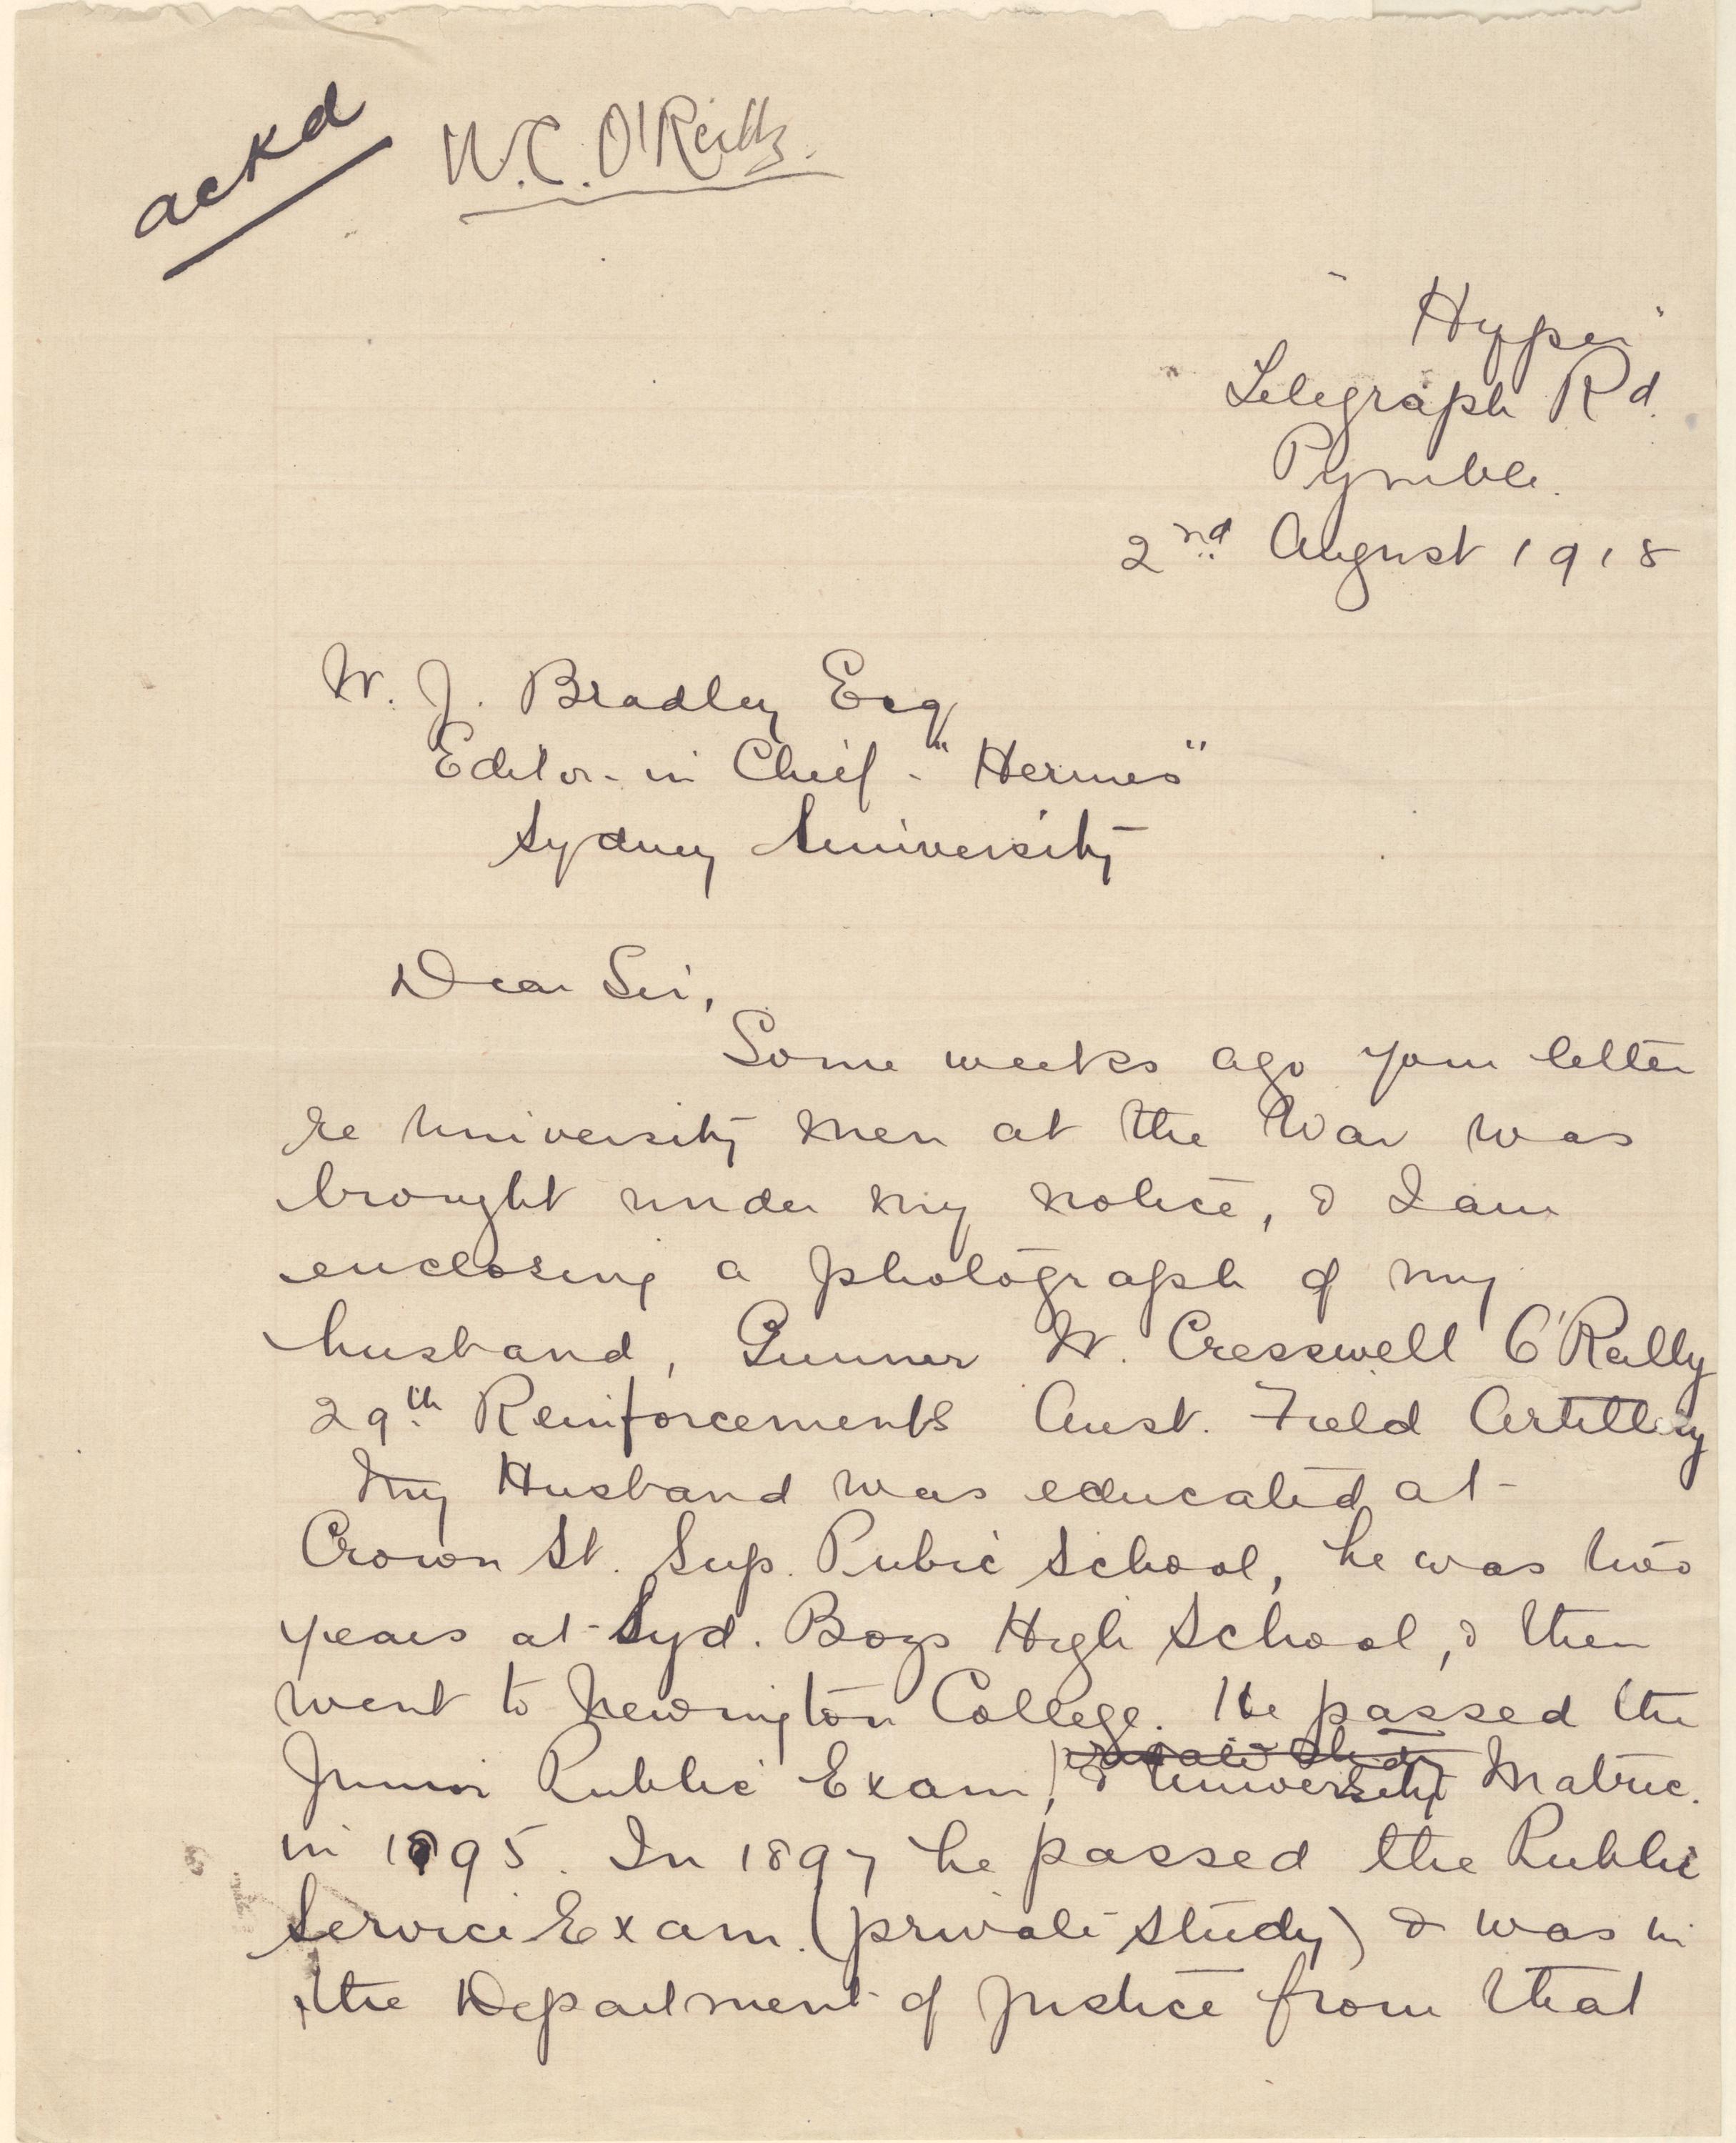 ackd
W.C. O'Reilly.
"Hyper"
Telegraph Rd.
Pymble.
2nd August 1918
W. J. Bradley Esq
Editor-in Chief - "Hermes"
Sydney University
Dear Sir,
Some weeks ago your letter
re University men at the War was
brought under my notice, & I am
enclosing a photograph of my
husband, Gunner W. Cresswell O'Reilly
29th Reinforcements Aust. Field Artillery
My Husband was educated at
Crown St. Sup. Pubic School, he was two
years at Syd. Boys High School, & then
went to Newington College. He passed the
Junior Public Exam, & University Matric.
in 1895. In 1897 he passed the Public
Service Exam. (private study) & was in
the Department of Justice from that